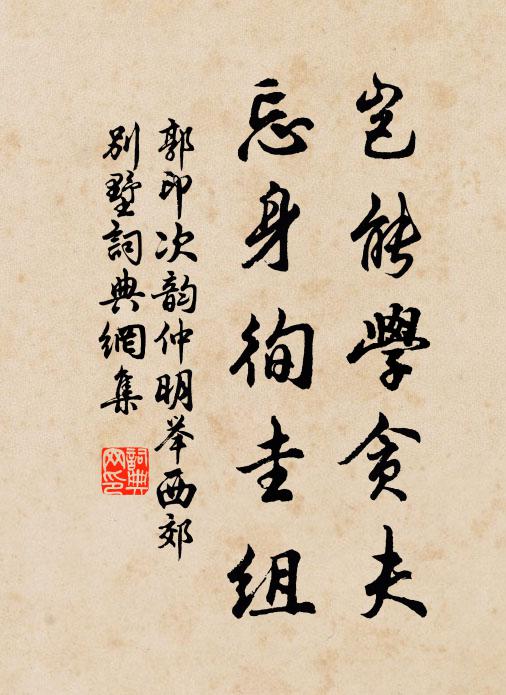 岂能學贪夫
忘身徇圭组
郭印次韵仲明举西郊
别墅詞典網集
詞典網印